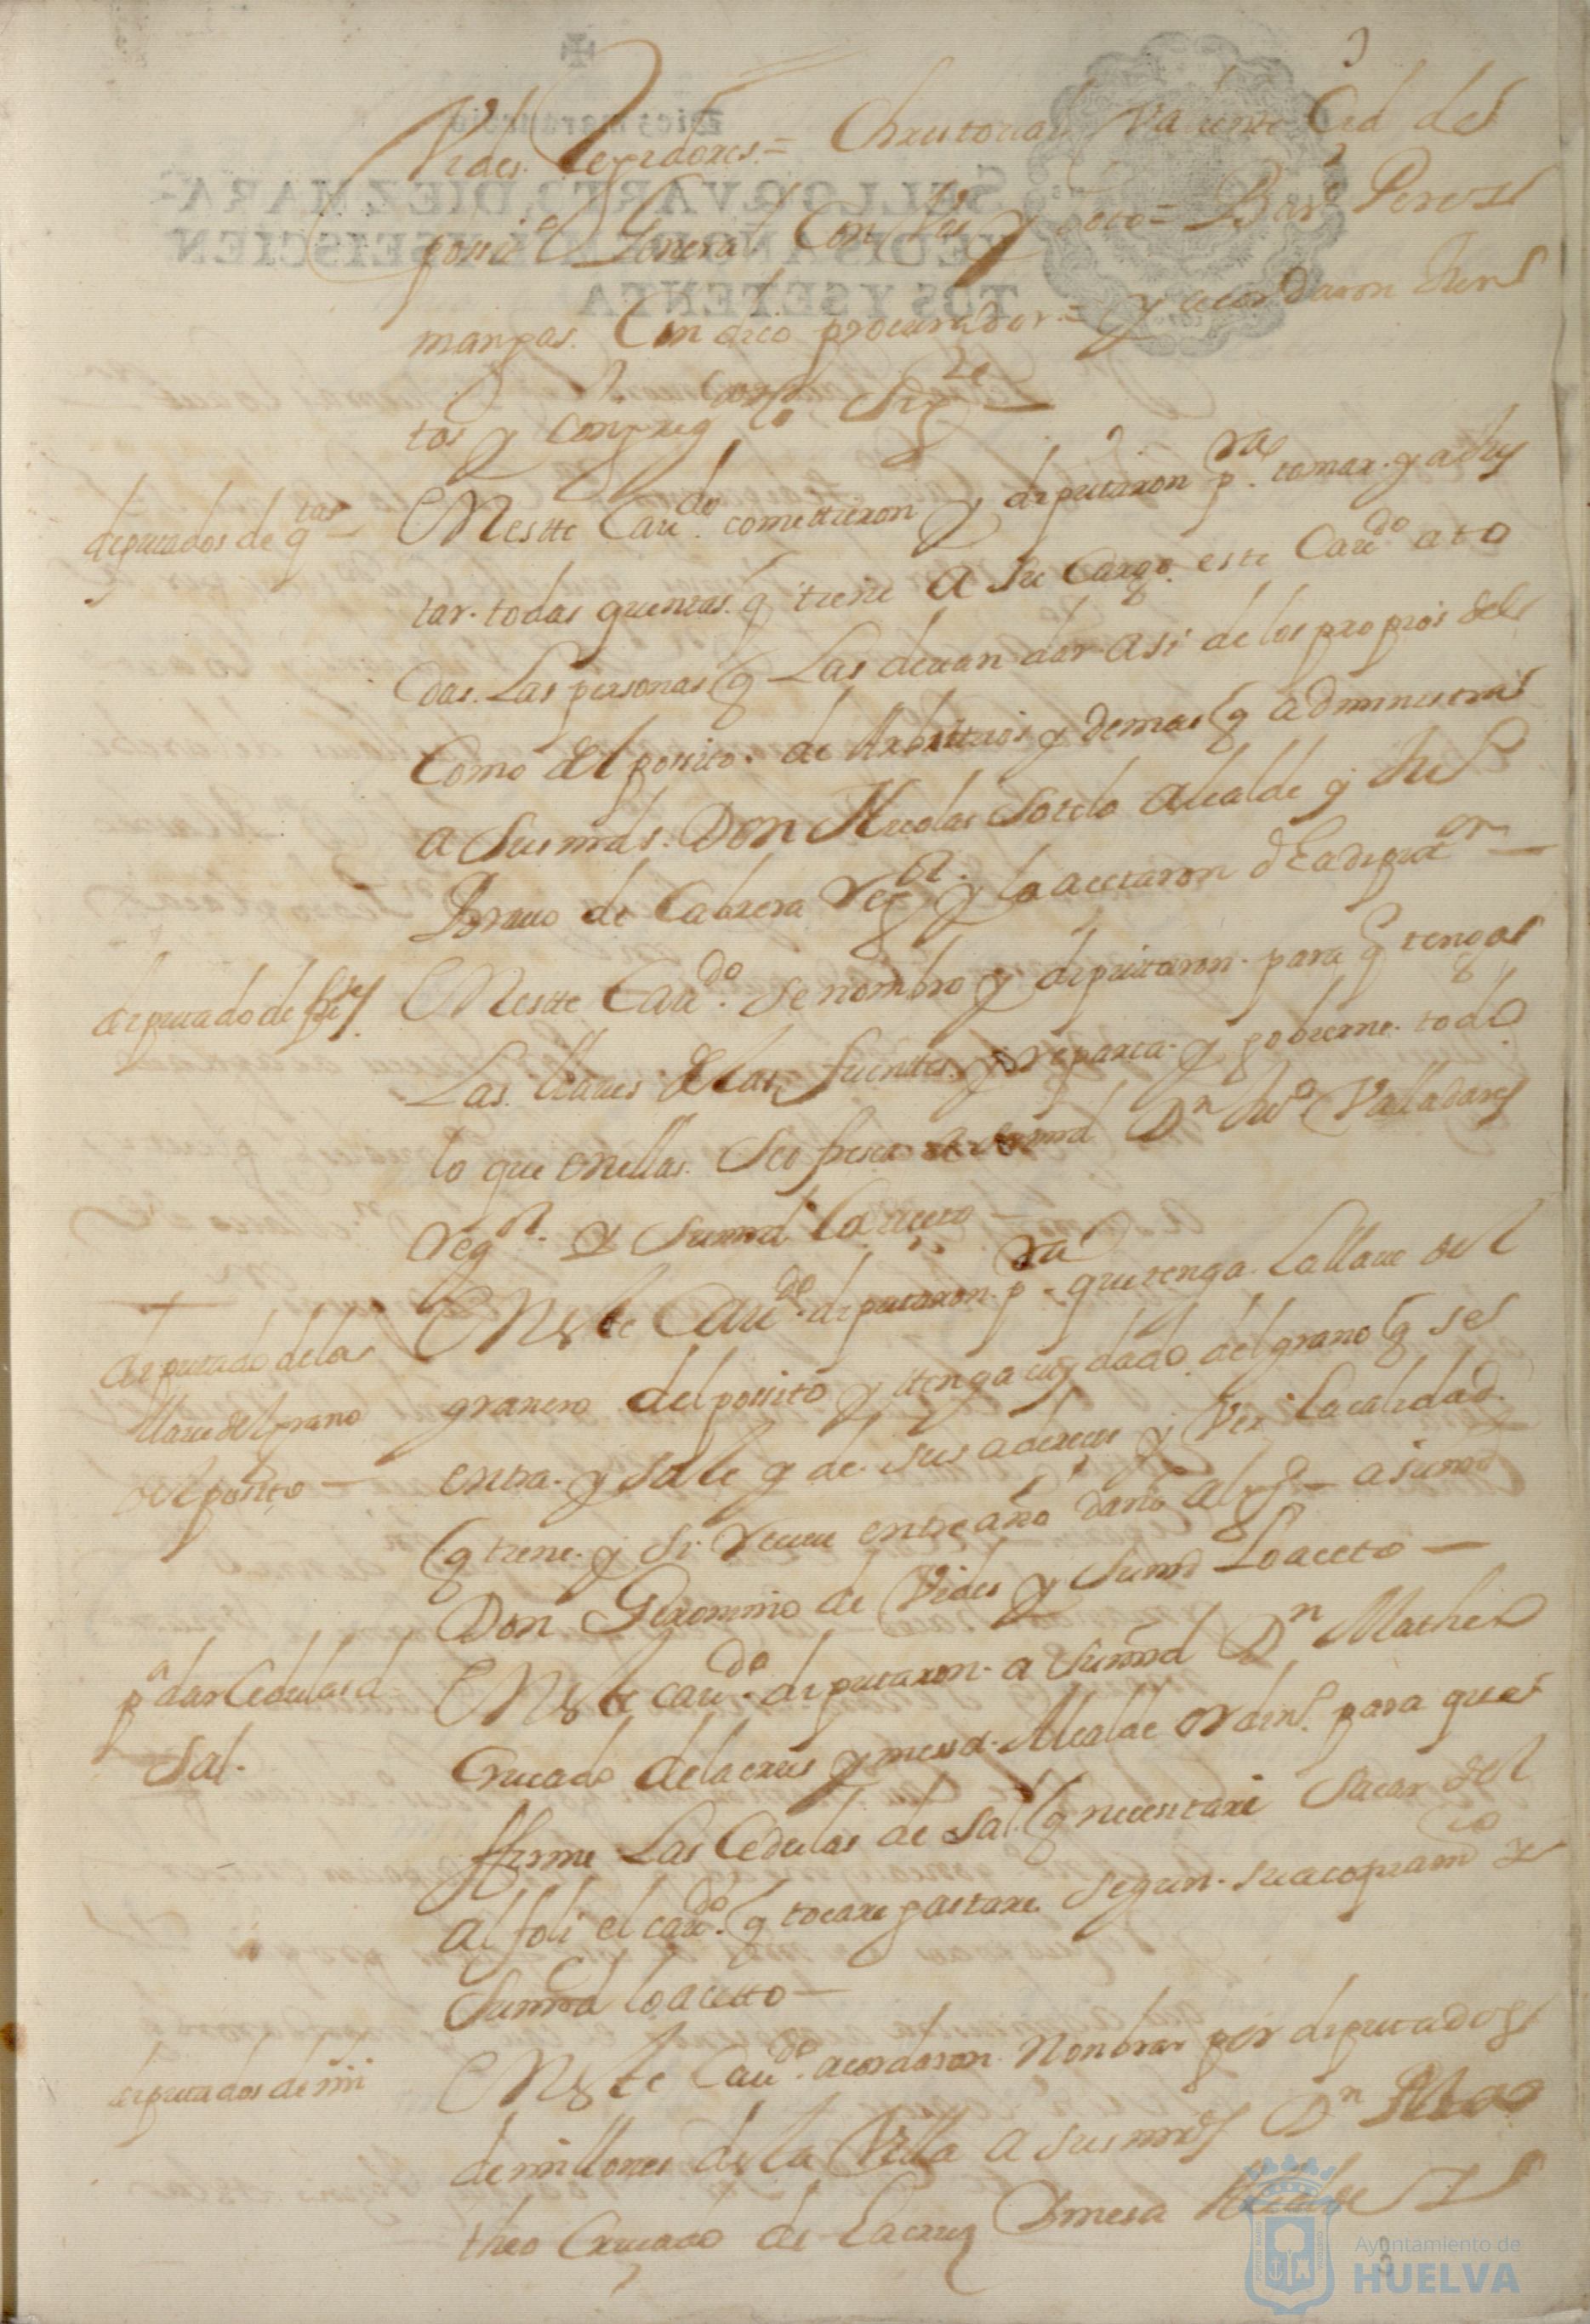 Vides Regidores = Christoual Valiente Cid del
possito General Con Vos y Voto = Bar.e Perez
mangas Cin dico procurador = y acordaron Jun
tos y Congreg.dos lo Sig.te
deputados de q.tas
En estte Cau.do comettieron y diputaron p.ra tomar y adjus
tar todas quentas q tiene a su Cargo este Cau.do a to
das Las personas q Las deuan dar asi de los propios del
Como del possito de Arbitrios y demas q administra
a Sus mrds Don Nicolas Sotelo Alcalde y Ju.o
Bonuo de Cabrera Reg.or y lo acetaron d La diput.on
deputado de f.tes
En estte Cau.do se nombro y diputaron para q tenga
Las llaues de las fuentes y reparta y gobierne todo
lo que en ellas Se ofresca a su md D.n Ju.o Valladares
Reg.or y Sumrd Lo aceto
deputado de la
llaue del grano
del possito
En este Cau.do diputaron p.ra que tenga la llaue del
granero del possito y tenga cuydado del grano q se
entra y sale q de sus aderecos y Ver la calidad
q tiene y si reciue entre año daño algº a sumd
Don Geronimo de Vides y Sumd Lo aceto
p.a dar Cedulas d
Sal
En este cau.do diputaron a Sumrd D.n Matheo
Crucado de la crus y messa Alcalde ordin.o para que
ffirme Las Cedulas de sal q necesitare Sacar del
alfoli el cau.do q tocare gastare segun su acopiam.to y
Sumrd lo acetto
deputados de mi
En este Cau.do acordaron Nonbrar por diputados
de millones de la Villa a sus mrds D.n Ma
theo Crucado de Lacruz Ymesa Alcalde
Ayuntamiento de
HUELVA